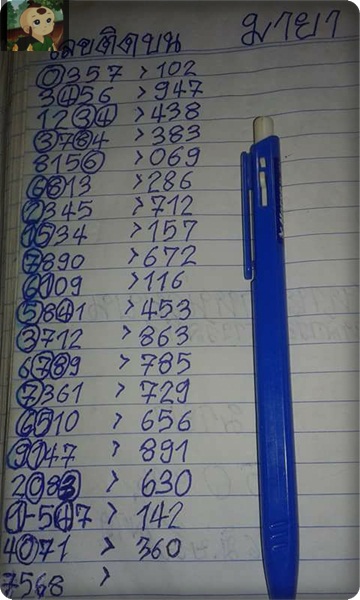 เลขติดบน มายา
0357 > 102
3456 > 947
1234 > 438
3784 > 383
8156 > 069
6813 > 286
2345 > 712
1534 > 157
7890 > 672
6109 > 116
5841 > 453
3712 > 863
6789 > 785
7361 > 729
6510 > 656
9147 > 891
2083 > 630
1-547 > 142
4071 > 360
7568 >